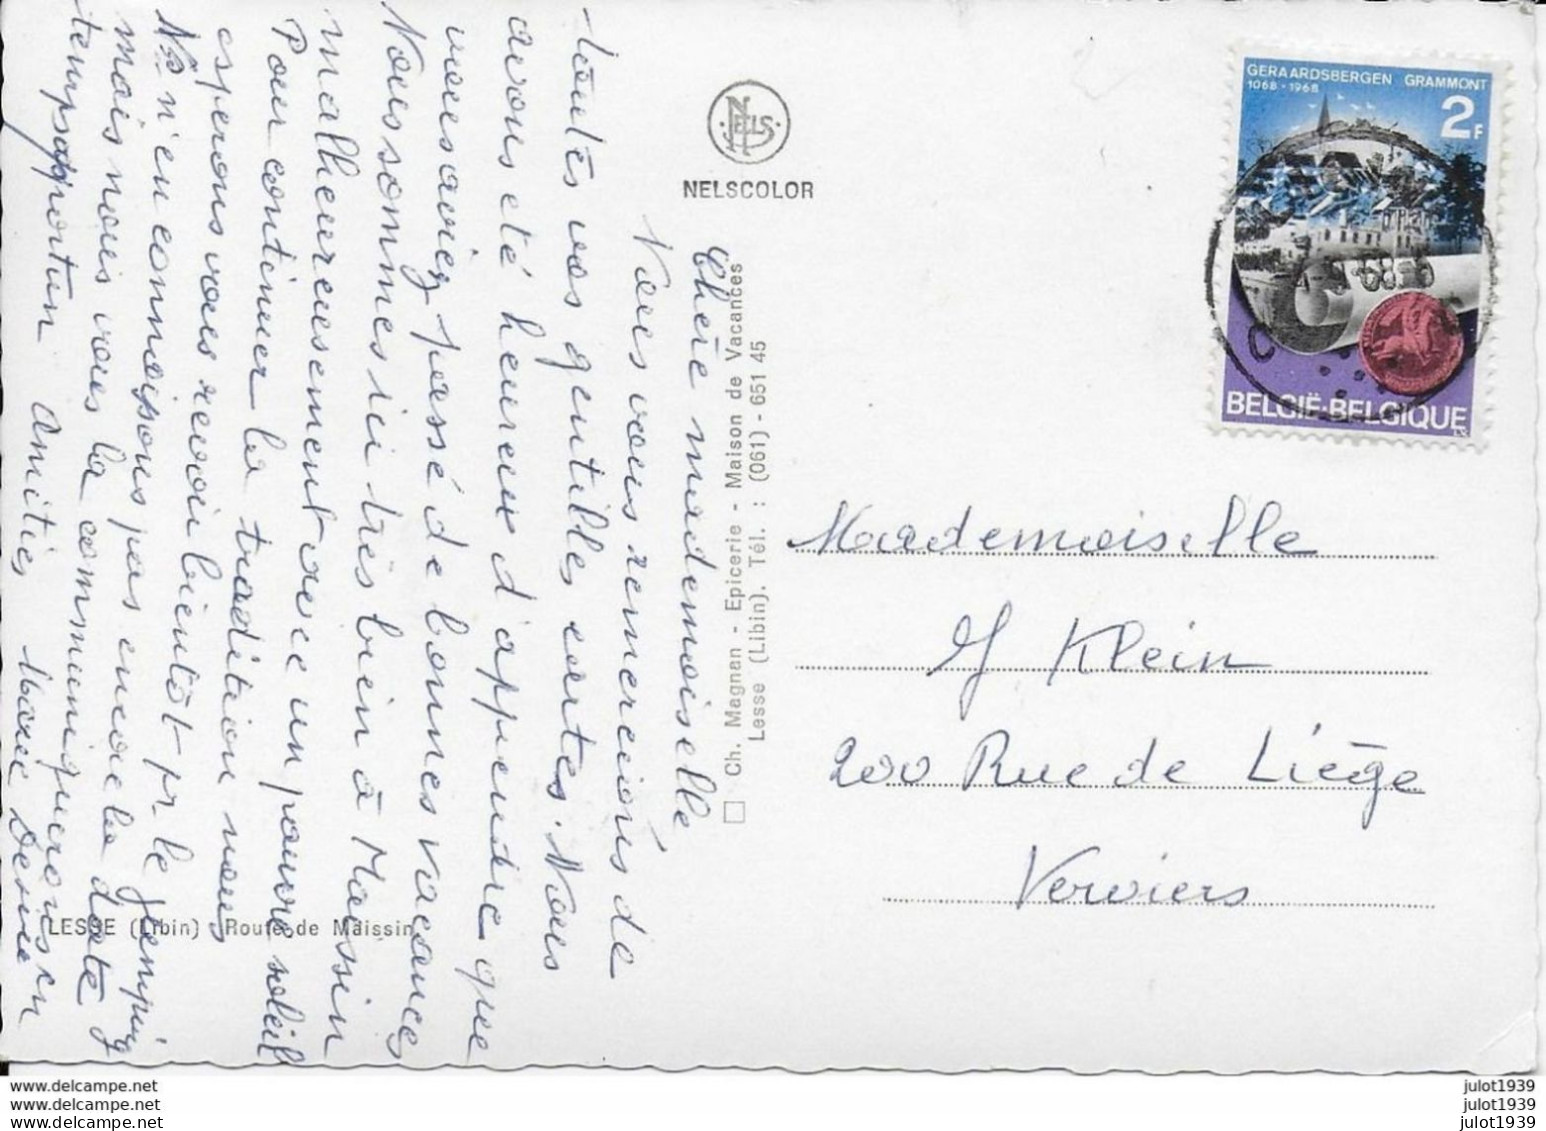 Chère mademoiselle
Nous vous remercions de
toutes vos gentilles cartes. Nous
avons été heureux d'apprendre que
vous aviez passé de bonnes vacances
Nous sommes ici très bien à Maissin
malheureusement avec un pauvre soleil
Pour continuer la tradition nous
esperons vous revoir bientôt pr le
Ns n'en connaissons pas encore la date
mais nous vous la communiquerons en
temps opportun Amitiés Marie
NELS
NELSCOLOR
Ch. Magnan - Epicerie - Maison de Vacances
Lesse (Libin). Tél. : (061) - 651 45
LESSE (Libin) Route de Maissin
GERAARDSBERGEN GRAMMONT
1068 - 1968
2F
BELGIË-BELGIQUE
Mademoiselle
Klein
200 Rue de Liège
Verviers
www.delcampe.net
www.delcampe.net
www.delcampe.net
julot1939
julot1939
julot1939